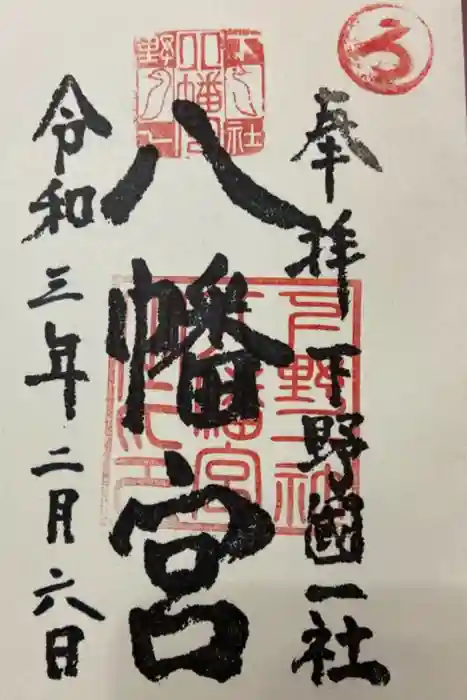 奉拝 下野國一社
八幡宮
令和三年二月六日